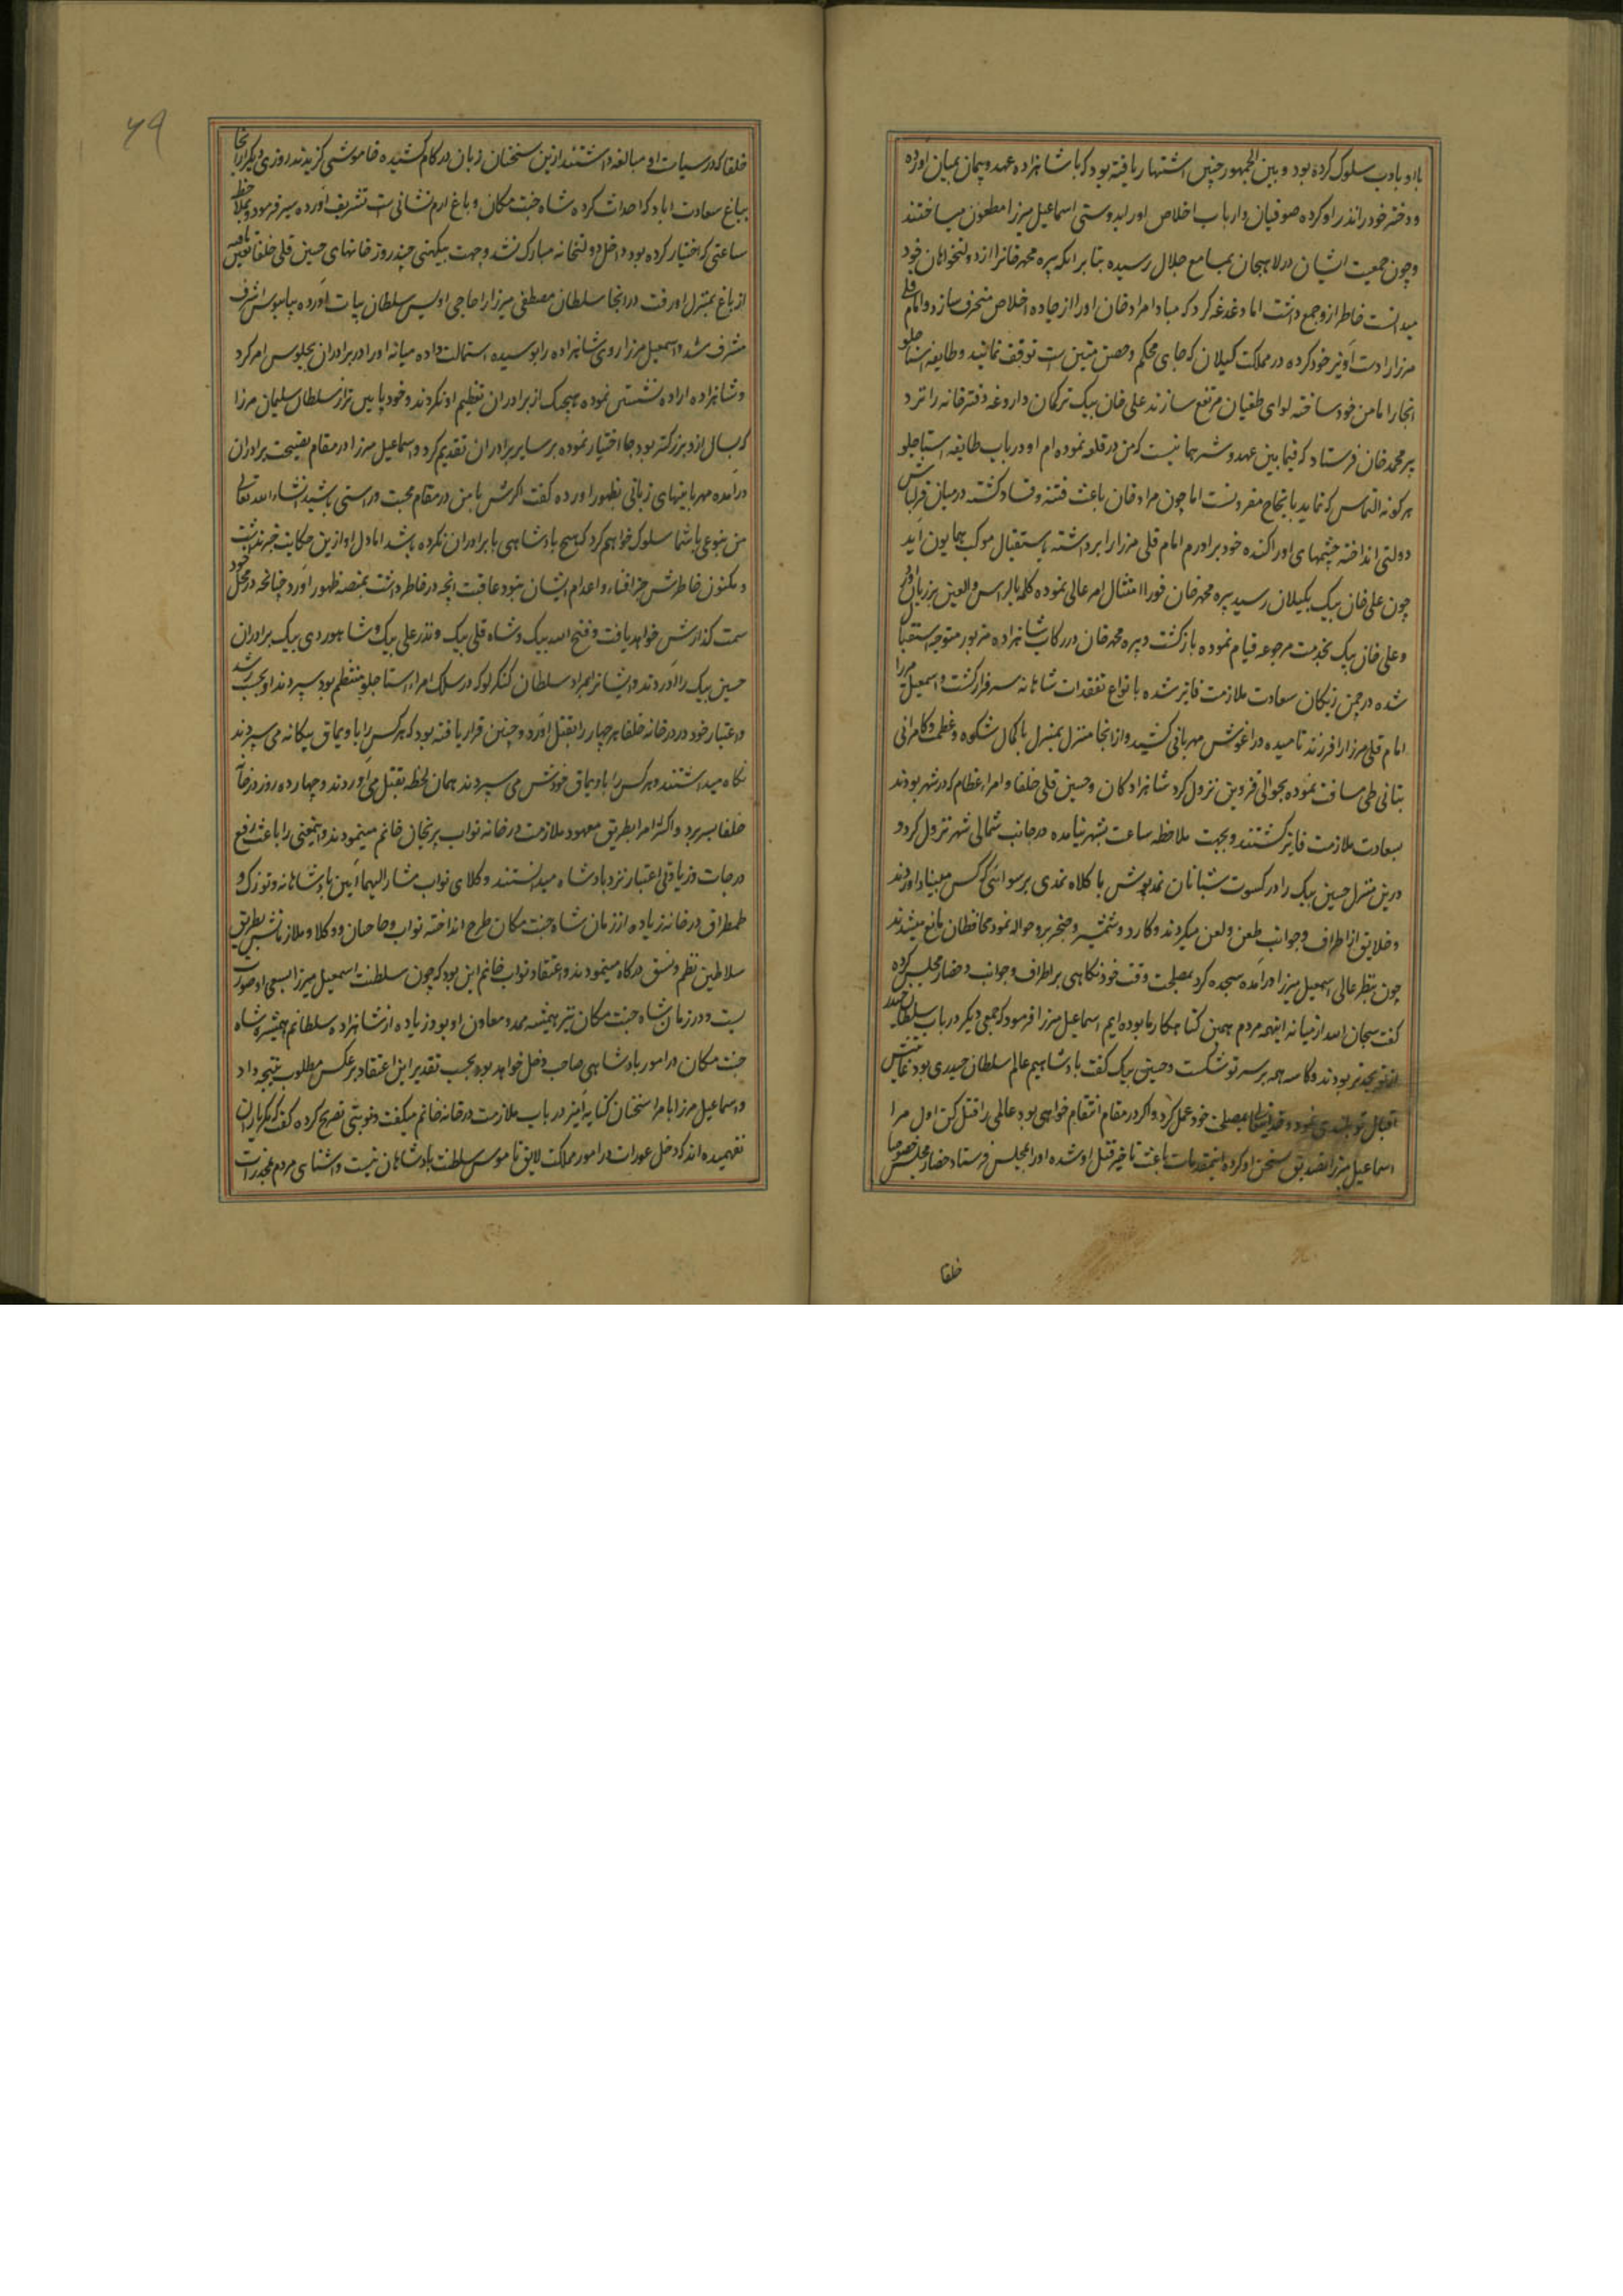 با او بادب سلوک کرده بود و بین الجمهور چنین اشتهار یافته بود که با شاهزاده عهد و پیمان بمیان آورده
و دختر خود را نذر او کرده صوفیان و ارباب اخلاص او را بدوستی اسماعیل میرزا مطعون میساختند
و چون جمعیت ایشان در لاهیجان بمسامع جلال رسیده بنا بر آنکه پیره محمد خانرا از دولتخواهان خود
میدانست خاطر ازو جمع داشت اما دغدغه کرد که مبادا مراد خان او را از جاده اخلاص منحرف سازد و امام قلی
مرزا را دست آویز خود کرده در مملکت کیلان که جای محکم و حصن متین است توقف نمایند و طایفه استاجلو
آنجا را مامن خود ساخته لوای طغیان مرتفع سازند علی خان بیک ترکمان داروغه دفترخانه را نزد
پیر محمد خان فرستاد که فیما بین عهد و شرط همانیست که من در قلعه نموده ام او در باب طایفه استاجلو
هر کونه التماس که نماید بانجاح مقرونست اما چون مراد خان باعث فتنه و فساد کشته در میان قزلباش
دولتی انداخته چشمهای او را کنده خود برادرم امام قلی مرزا را برداشته باستقبال موکب همایون آید
چون علی خان بیک بکیلان رسید پیره محمد خان فورا امتثال امر عالی نموده کلمه بالراس والعین بر زبان
و علی خان بیک بخدمت مرجوعه قیام نموده بازکشت و پیره محمد خان در رکاب شاهزاده مزبور متوجه استقبال
شده در چمن زنکان سعادت ملازمت فایز شده بانواع تفقدات شاهانه سرفراز کشت و اسمعیل مرزا
امام قلی مرزا را فرزند نامیده در آغوش مهربانی کشید و از آنجا منزل بمنزل با کمال شکوه و عظمت و کامرانی
بتانی طی مسافت نموده بحوالی قزوین نزول کرد شاهزادکان و حسین قلی خلفا و امراء عظام که در شهر بودند
بسعادت ملازمت فایز کشتند و بجهت ملاحظه ساعت بشهر نیامده در جانب شمالی شهر نزول کرد و
درین منزل حسین بیک را در کسوت شبانان نمدپوش با کلاه نمدی برسوائی که کس مبیناد آوردند
و خلایق از اطراف و جوانب طعن و لعن میکردند و کارد و شمشیر و خنجر برو حواله نمود محافظان مانع میشدند
چون بنظر عالی اسمعیل میرزا درآمده سجده کرد بمصلحت وقت خود نکاهی بر اطراف و جوانب و حضار مجلس کرده
کفت سبحان الله از میانه اینهمه مردم همین کناهکار ما بوده ایم اسماعیل مرزا فرمود که جمعی دیکر در باب سلطان حیدر
بودند و کاسه همه بر سر تو شکست و حسین بیک کفت پادشاهیم عالم سلطان حیدری بود
اقبال تو بلندی نمود و خود عمل کرد و اکر در مقام انتقام خواهی بود عالمی را قتل کن اول مرا
اسماعیل میرزا تصدیق سخن او کرده اینمقدمات باعث تاخیر قتل او شده او را بمجلس فرستاد حضار مجلس خصوصا
خلفا
۷۹
خلفا که در سیاست او مبالغه داشتند ازین سخنان زبان در کام کشیده خاموشی کزیدند روزی دیکر از آنجا
بباغ سعادت اباد که احداث کرده شاه جنت مکان و باغ ارم نشانی است تشریف آورده سیر فرمود و بملاحظه
ساعتی که اختیار کرده بود داخل دولتخانه مبارک نشد و جهت چند روز خانهای حسین قلی خلفا تعیین یافته
از باغ بمنزل او رفت در آنجا سلطان مصطفی میرزا را حاجی اویس سلطان بیات آورده بپابوس اشرف
مشرف شد و اسمعیل مرزا روی شاهزاده را بوسیده استمالت داده میانه او را در برادران بجلوس امر کرد
و شاهزاده اراده نشستن نموده هیچیک از برادران تعظیم او نکردند و خود پایین تر از سلطان سلیمان مرزا
که بسال ازو بزرکتر بود جا اختیار نموده بر سایر برادران تقدیم کرد و اسماعیل مرزا در مقام نصیحت برادران
درآمده مهربانیهای زبانی بظهور آورده کفت اکر شما با من در مقام محبت و راستی باشید انشاء الله تعالی
من بنوعی با شما سلوک خواهم کرد که هیچ پادشاهی با برادران نکرده باشد اما دل او ازین حکایت خبر نداشت
و مکنون خاطرش جز افناء و اعدام ایشان نبود عاقبت آنچه در خاطر داشت بمنصه ظهور آورد چنانچه در محل خود
سمت کذارش خواهد یافت و فتح الله بیک و شاه قلی بیک و نذر علی بیک و شاهوردی بیک برادران
حسین بیک را آوردند و ایشانرا بمراد سلطان کنکرلو که در سلک امراء استاجلو منتظم بود سپردند او بجهت رشد
و اعتبار خود در در خانه خلفا هر چهار را بقتل آورد و چنین قرار یافته بود که هر کس را باویماق بیکانه می سپردند
نکاه میداشتند و هر کس را باویماق خودش می سپردند همان لحظه بقتل می آوردند و چهارده روز در خانه
خلفا بسر برد و اکثر امرا بطریق معهود ملازمت در خانه نواب پریخان خانم مینمودند و اینمعنی را باعث رفع
درجات و زیادتی اعتبار نزد پادشاه میدانستند و وکلای نواب مشار الیها آیین پادشاهانه و توزک و
طمطراق در خانه زیاده از زمان شاه جنت مکان طرح انداخته نواب و حاجبان و وکلا و ملازمانش بطریق
سلاطین نظم و نسق درکاه مینمودند و اعتقاد نواب خانم این بود که چون سلطنت اسمعیل میرزا بسعی او صورت
بست و در زمان شاه جنت مکان نیز همیشه ممد و معاون او بود زیاده از شاهزاده سلطانم همشیره شاه
جنت مکان در امور پادشاهی صاحب دخل خواهد بود بحسب تقدیر این اعتقاد برعکس مطلوب نتیجه داد
و اسماعیل مرزا بامرا سخنان کنایه آمیز در باب ملازمت در خانه خانم میکفت و نوبتی تصریح کرده کفت که مکر یاران
نفهمیده اند که دخل عورات در امور مملکت لایق ناموس سلطنت پادشاهان نیست و آشنای مردم بمخدرات